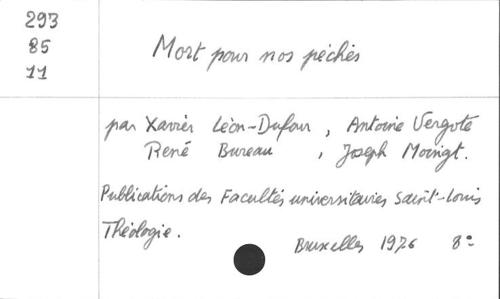 293
85
11
Mort pour nos péchés
par Xavier Léon-Dufour, Antoine Vergote
René Bureau, Joseph Moingt.
Publications des Facultés universitaires Saint-Louis
Théologie.
Bruxelles 1976 8°